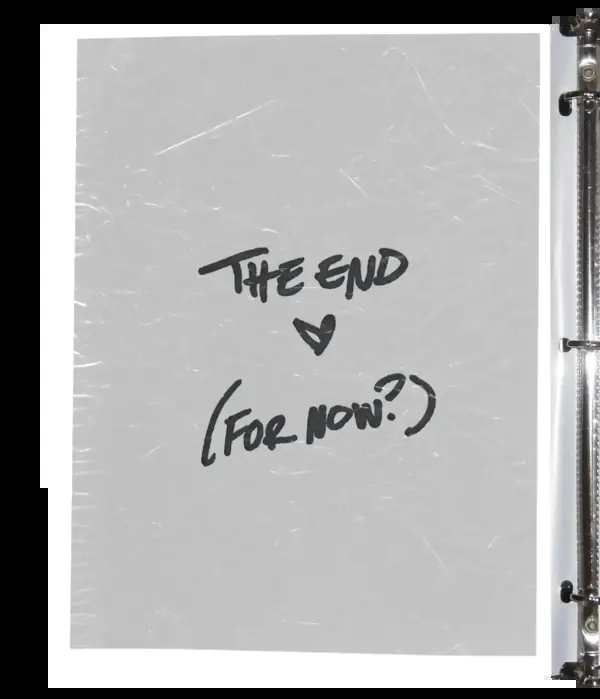 THE END
(FOR NOW?)